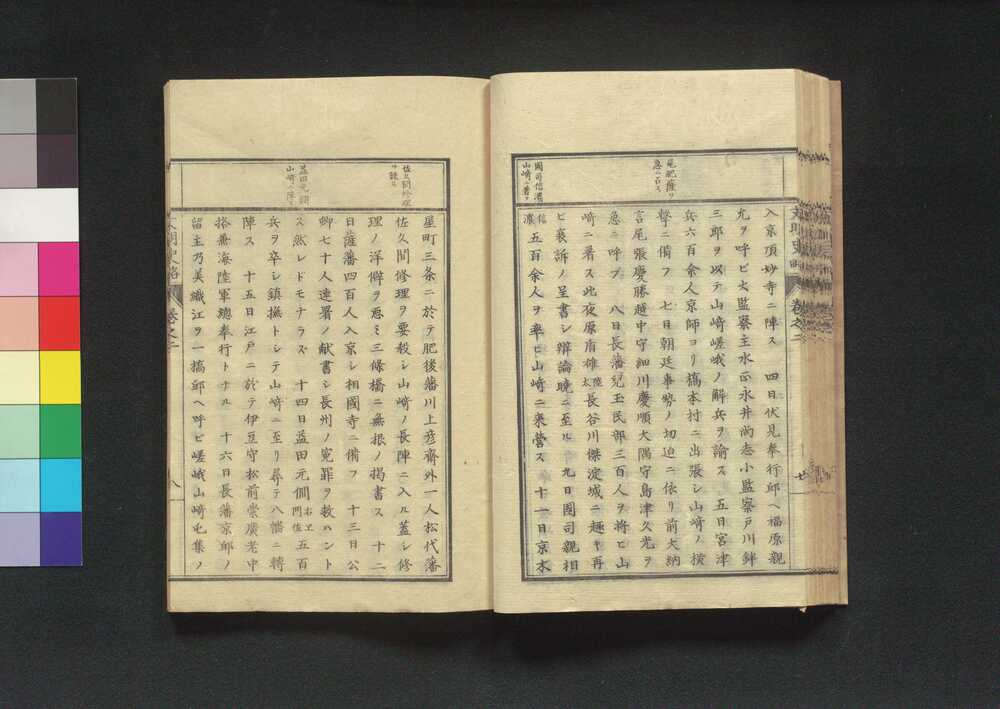 尾肥薩ヲ
急ニ召ス
國司信濃
山崎ニ着ス
入京頂妙寺ニ陣ス 四日伏見奉行邸ヘ福原親
允ヲ呼ビ大監察主水正永井尚志小監察戸川鉡
三郎ヲ以テ山崎嵯峨ノ解兵ヲ諭ス 五日宮津
兵六百余人京師ヨリ槁本村ニ出張シ山崎ノ横
撃ニ備フ 七日朝廷事勢ノ切迫ニ依リ前大納
言尾張慶勝越中守細川慶順大隅守島津久光ヲ
急ニ呼ブ 八日長藩兒玉民部三百人ヲ将ヒ山
崎ニ着ス此夜原甫雄太陸長谷川傑淀城ニ趣キ再
ビ哀訴ノ呈書シ辯論曉ニ至ル 九日國司親相
信濃五百余人ヲ率ヒ山崎ニ来營ス 十一日京木
卷之二
佐久間修理
ヲ誅ス
益田元僴
山崎ニ陣ス
屋町三条ニ於テ肥後藩川上彦齋外一人松代藩
佐久間修理ヲ要殺シ山崎ノ長陣ニ入ル蓋シ修
理ノ洋僻ヲ惡ミ三條橋ニ無根ノ掲書ス 十二
日薩藩四百人入京シ相國寺ニ備フ 十三日公
卿七十人連署ノ献書シ長州ノ寃罪ヲ救ハント
ス然レドモナラズ 十四日益田元僴右エ門佐五百
兵ヲ卒シ鎮撫トシテ山崎ニ至リ尋テ八幡ニ轉
陣ス 十五日江戸ニ於テ伊豆守松前崇廣老中
格兼海陸軍總奉行トナル 十六日長藩京邸ノ
留主乃美織江ヲ一槁邸ヘ呼ビ嵯峨山崎屯集ノ
卷之二
八